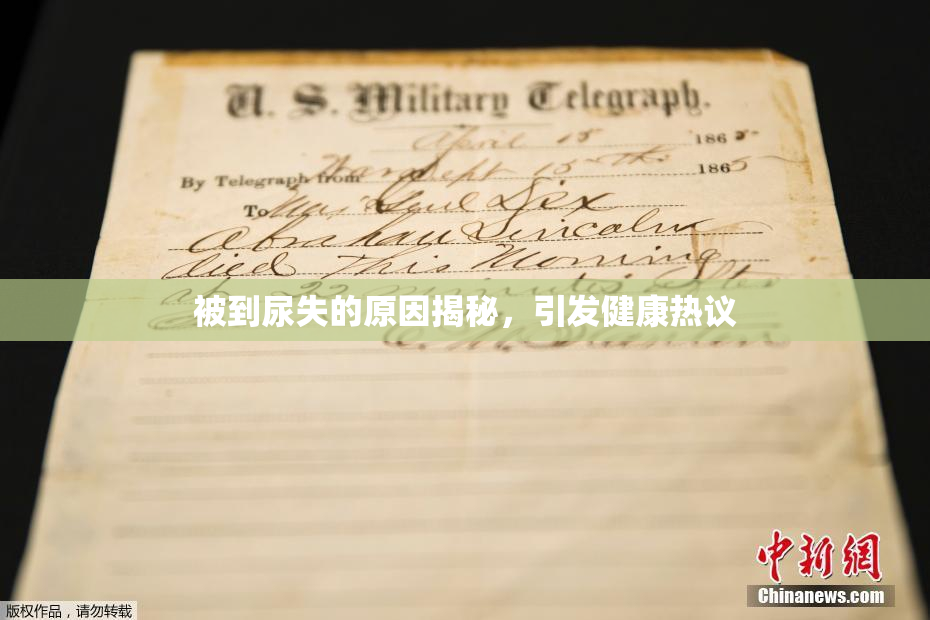 U. S. Military Telegraph.
April 15 1865
By Telegraph from War Dept 15th 1865
To Maj Genl Dix
Abraham Lincoln
died This Morning
at 22 minutes after
被到尿失的原因揭秘，引发健康热议
中新網
Chinanews.com
版权作品，请勿转载